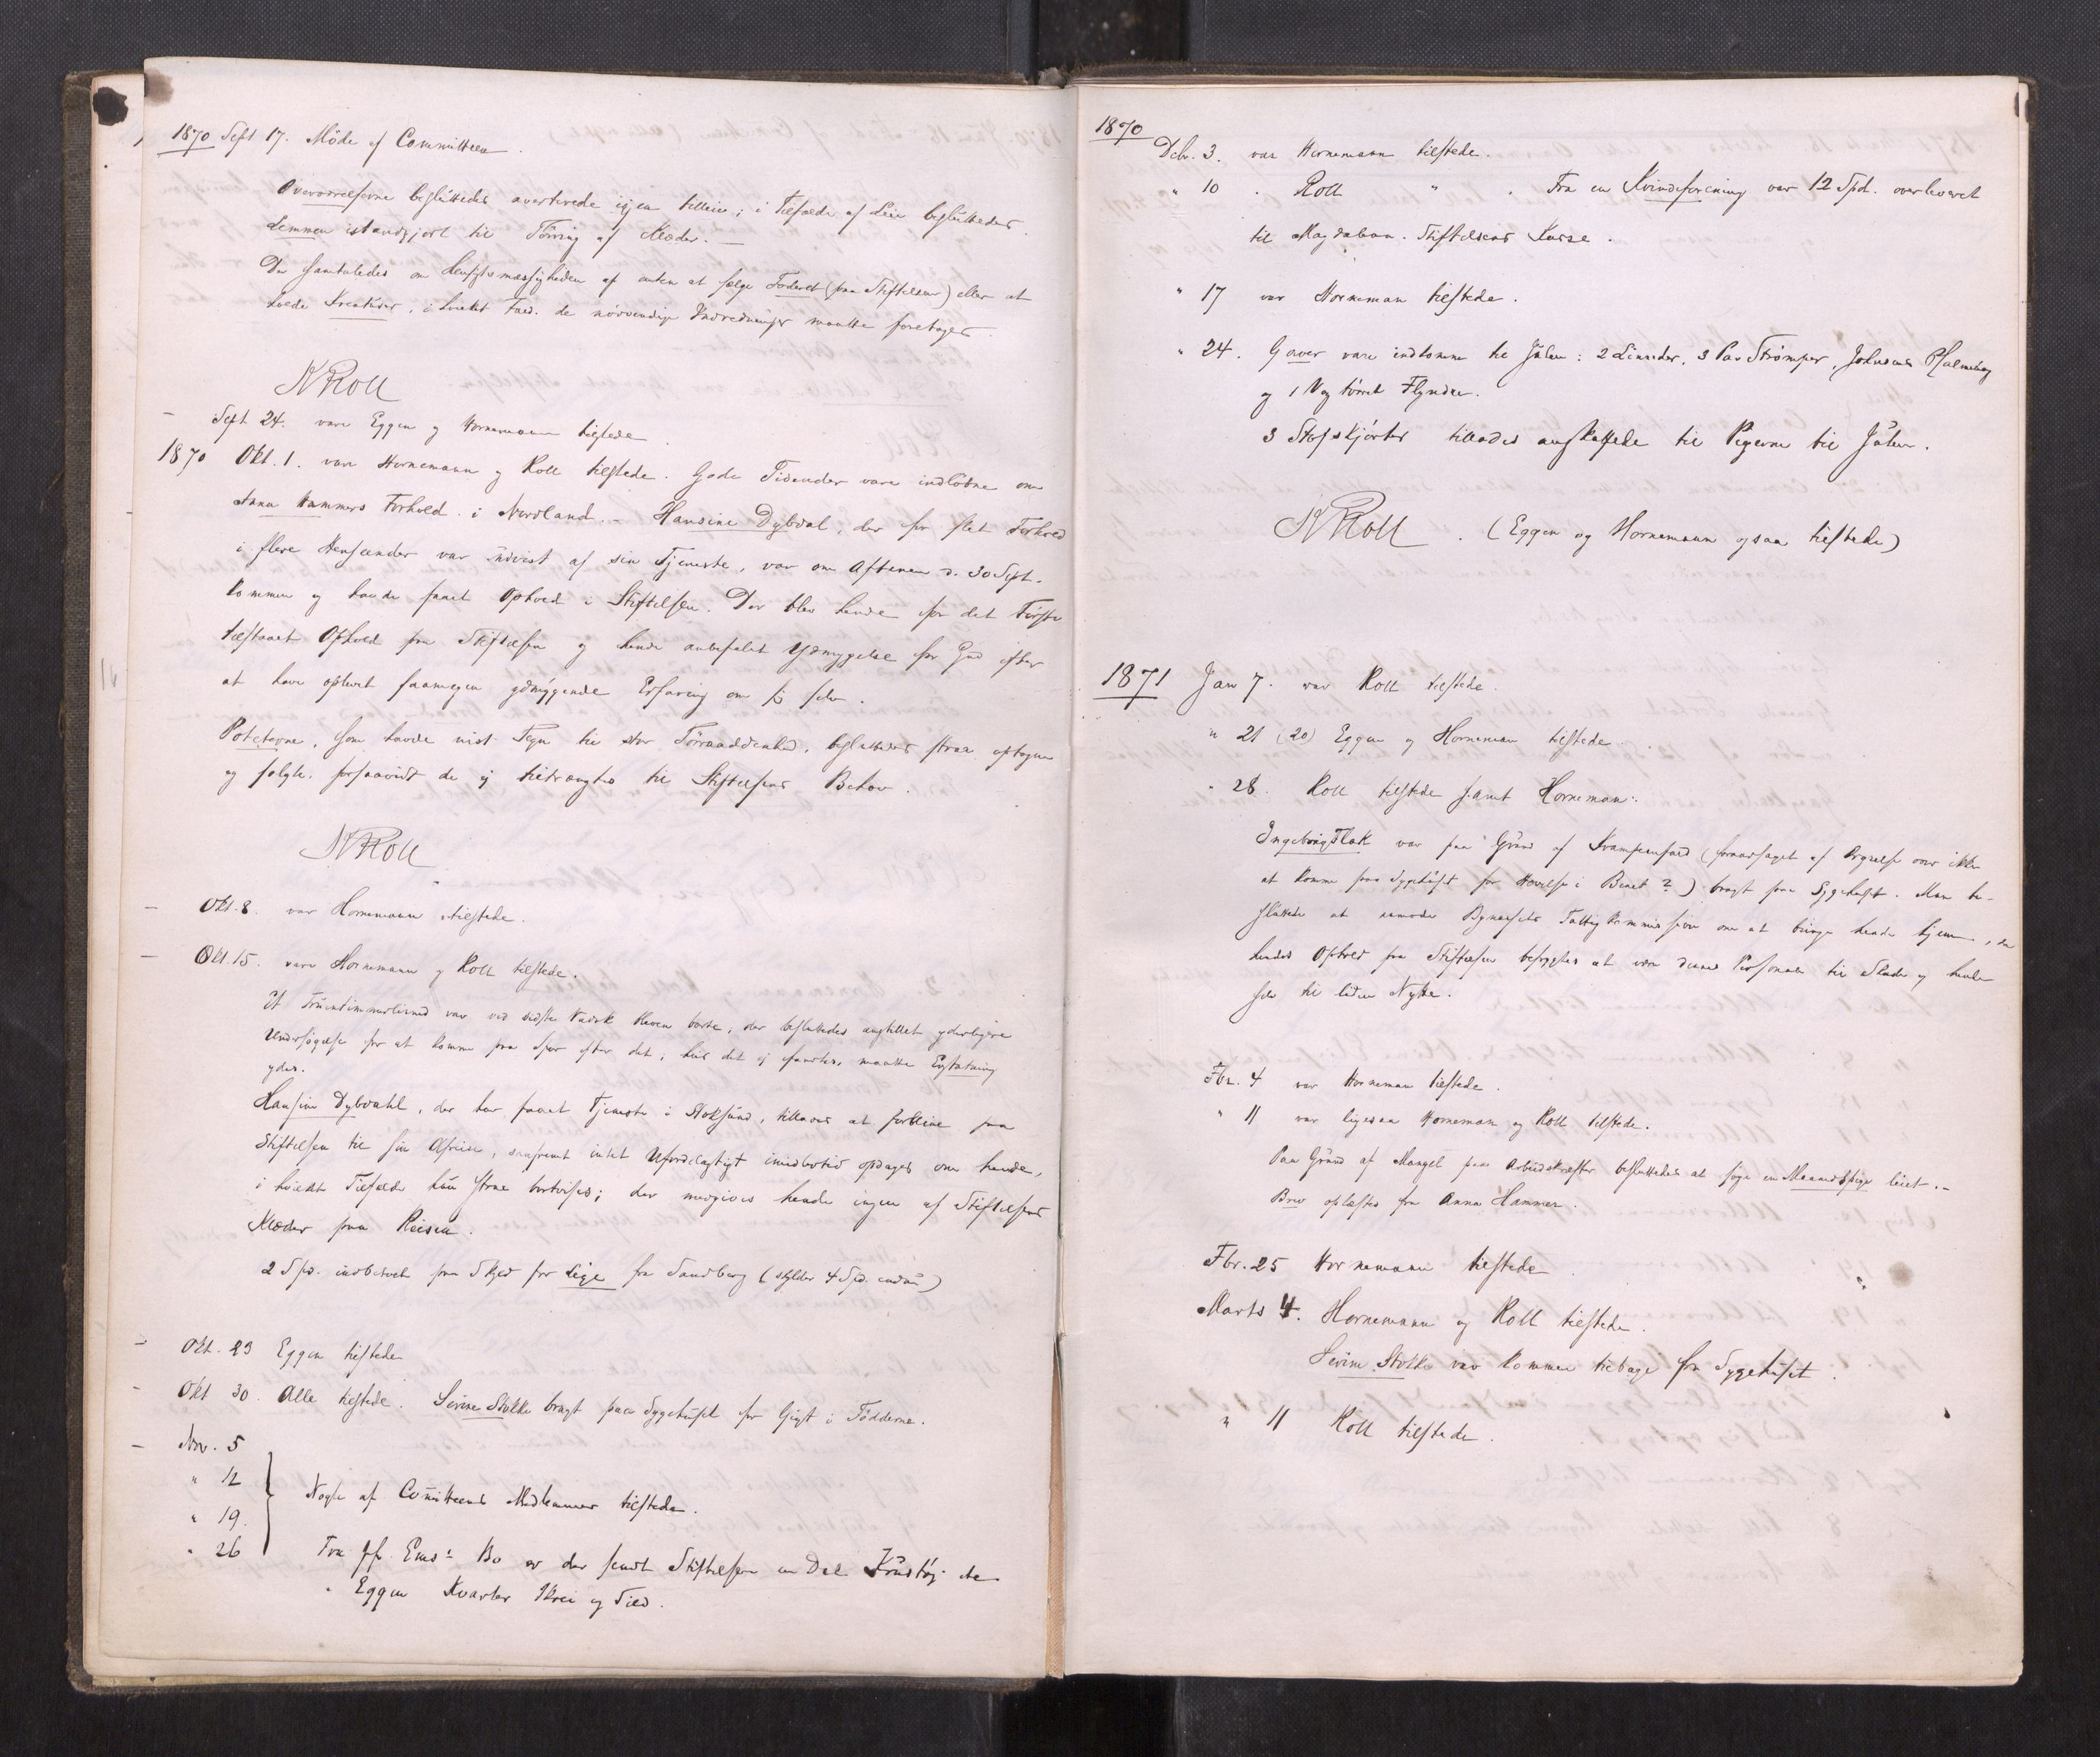 1870 Sept 17. Møde af Committeen.
Overværelserne besluttedes averterede igjen tilleie; i Tilfælde af Leie besluttedes
Lemmen istandgjort til Tørring af Klæder.
Der samtaledes om Hensigtsmæssigheden af enten at sælge Foderet (paa Stiftelsen) eller at
holde Kreaturer, i hvilket Fald de nødvendige Indredninger maatte foretages.
N Roll
Sept 24. vare Eggen og Hornemann tilstede.
1870 Okt. 1. vare Hornemann og Roll tilstede. Gode Tidender vare indløbne om
Anna Hammers Forhold i Nordland. – Hansine Dybdal, der for slet Forhold
i flere Henseender var udvist af sin Tjeneste, var om Aftenen d. 30 Sept.
kommen og havde faaet Ophold i Stiftelsen. Der blev hende for det Første
tilstaaet Ophold paa Stiftelsen og hende anbefalet Ydmygelse for Gud efter
at have oplevet saamegen ydmygende Erfaring om sig selv.
Poteterne, som havde vist Tegn til stor Tørraaddenhed, besluttedes strax optagne
og solgte, forsaavidt de ej tiltrængtes til Stiftelsens Behov.
N Roll
Okt. 8. var Hornemann tilstede.
Okt. 15. vare Hornemann og Roll tilstede.
Et Fruentimmerlinned var ved sidste Vadsk bleven borte, der besluttedes anstillet yderligere
Undersøgelse for at komme paa Spor efter det; hvis det ej fandtes, maatte Erstatning
ydes.
Hansine Dybdahl, der har faaet Tjeneste i Stoksund, tillodes at forblive paa
Stiftelsen til sin Afreise, saafremt intet Ufordelagtigt imidlertid opdages om hende,
i hvilket Tilfælde hun strax bortvises; der medgives hende ingen af Stiftelsens
Klæder paa Reisen.
2 Spd. indbetalt paa Skyld for Leje fra Sandberg (skylder 4 Spd. endnu)
Okt. 23 Eggen tilstede
Okt 30. Alle tilstede. Serine Stolke bragt paa Sygehuset for Gigt i Fødderne.
Nov. 5
" 12
" 19. Nogle af Committeens Medlemmer tilstede.
" 26 Fra Bo er der sendt Stiftelsen en Del
" Eggen Kvarter Skrei og Sild.
1870
Decbr. 3. var Hornemann tilstede.
" 10. Roll " . Fra en Kvindeforening var 12 Spd. overleveret
til Magdalena-Stiftelsens Kasse.
" 17 var Horneman tilstede.
" 24. Gaver vare indkomne til Julen: 2 Linneder, 3 Par Strømper, Johnsens Psalmebog
og 1 Vog tørret Flyndre.
3 Stofskjørter tillodes anskaffede til Pigerne til Julen.
N Roll. (Eggen og Hornemann ogsaa tilstede)
1871 Jan 7. var Roll tilstede.
" 21 (20) Eggen og Horneman tilstede.
" 28. Roll tilstede samt Horneman:
Ingeborg Flak var paa Grund af Krampeanfald (foraarsaget af Ærgrelse over ikke
at komme paa Sygehuset for Hævelse i Benet?) bragt paa Sygehuset. Man be-
sluttede at anmode Bynæsets Fattigkommission om at bringe hende hjem, da
hendes Ophold paa Stiftelsen befrygtes at være dennes Personale til Skade og hende
selv til liden Nytte.
Fbr. 4 var Horneman tilstede.
" 11 var ligesaa Horneman og Roll tilstede.
Paa Grund af Mangel paa Arbeidskræfter besluttedes at søge en Maanedspige leiet. –
Brev oplæstes fra Anna Hammer.
Fbr. 25 Hornemann tilstede.
Marts 4. Hornemann og Roll tilstede.
Serine Stolke var kommen tilbage fra Sygehuset.
" 11 Roll tilstede.